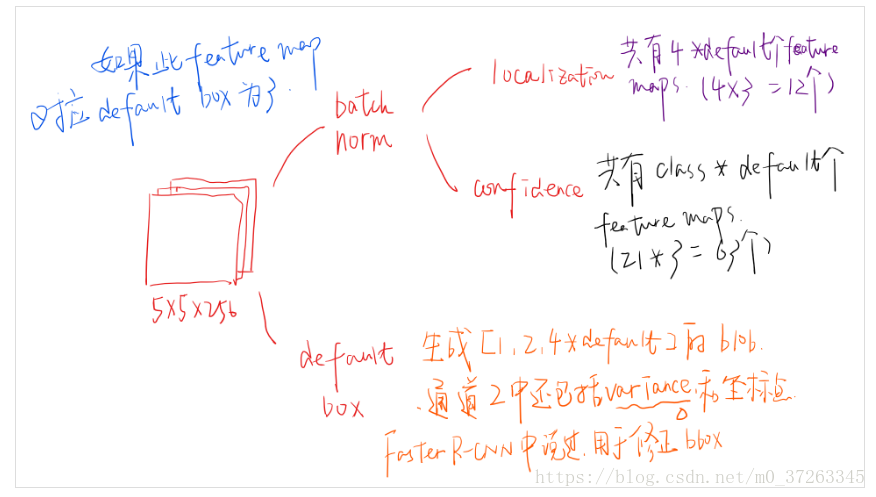 如果此feature map
对应default box为3.
batch
norm
localization
共有4*default个feature
maps. (4x3 =12个)
confidence
共有class*default个
feature maps.
(21*3=63个)
5x5x256
default
box
生成[1,2,4*default]的blob.
.通道2中还包括variance.和坐标点.
Faster R-CNN中说过.用于修正bbox
https://blog.csdn.net/m0_37263345